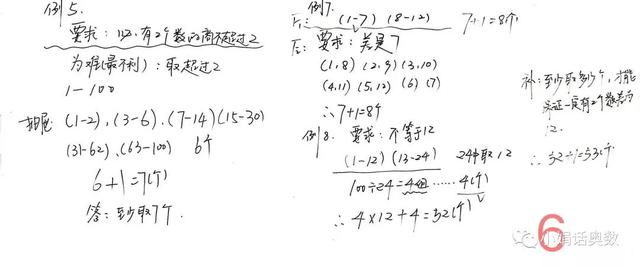 例5.
要求:必有2个数的商不超过2
为难(最不利):取超过2
1-100
抽屉:(1-2),(3-6),(7-14)(15-30)
(31-62),(63-100) 6个
6+1=7(个)
答:至少取7个.
例7.
(1-7) (8-12) 7+1=8个
要求:差是7
(1,8)(2,9)(3,10)
(4,11)(5,12)(6)(7)
∴7+1=8个
例8. 要求:不等于12
(1-12)(13-24) 24中取12
100÷24=4组……4(个)
∴4×12+4=52(个)
补:至少取多少个,才能
保证一定有2个数差为
12.
∴52+1=53(个)
6
小娟话奥数